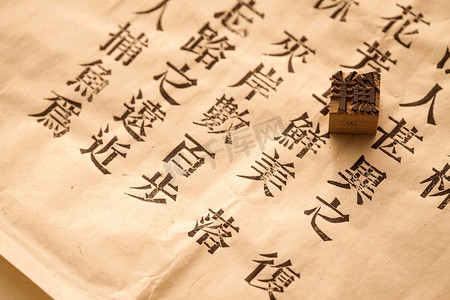 林
人甚異之復
花芳鮮美落
夾岸數百步
忘路之遠近
人捕魚為